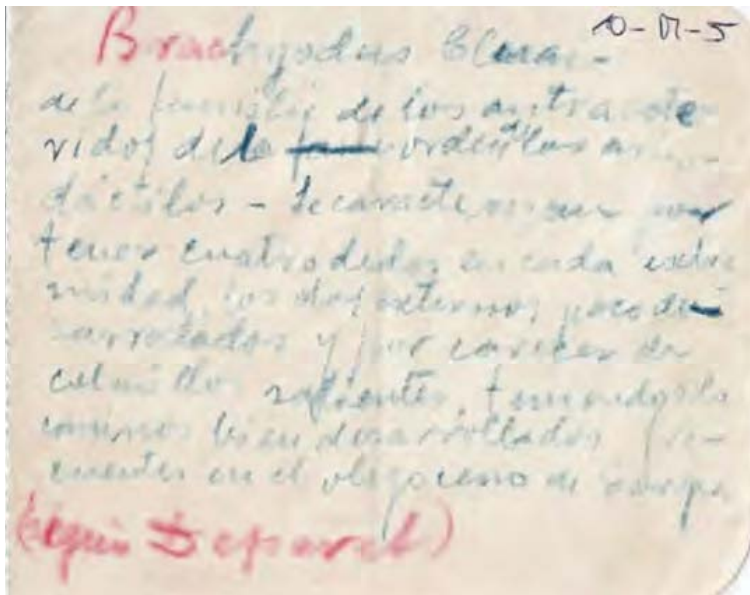 10-VI-5
Brachyodus Cluai-
de la familia de los antracote
ridos de la orden de los
dáctilos - Se caracterizan por
tener cuatro dedos en cada extre
midad, los dos externos poco de
sarrollados y por carecer de
colmillos salientes, teniendo los
caninos bien desarrollados fre-
cuentes en el oligoceno de Europa
(según Deparet)